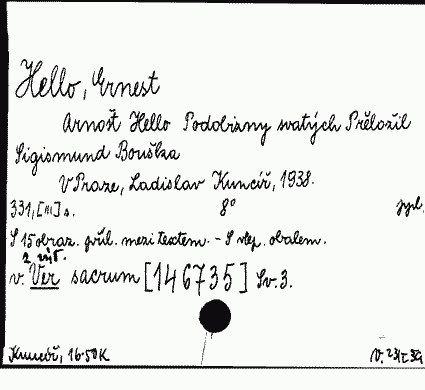 Hello, Ernest
Arnošt Hello Podobizny svatých Přeložil
Sigismund Bouška
V Praze, Ladislav Kuncíř, 1938.
331, [III] s. 8°
S 15 obraz. příl. mezi textem. - S vlep. obalem.
v. Ver sacrum [146735] Sv. 3.
Kuncíř, 16·50 K